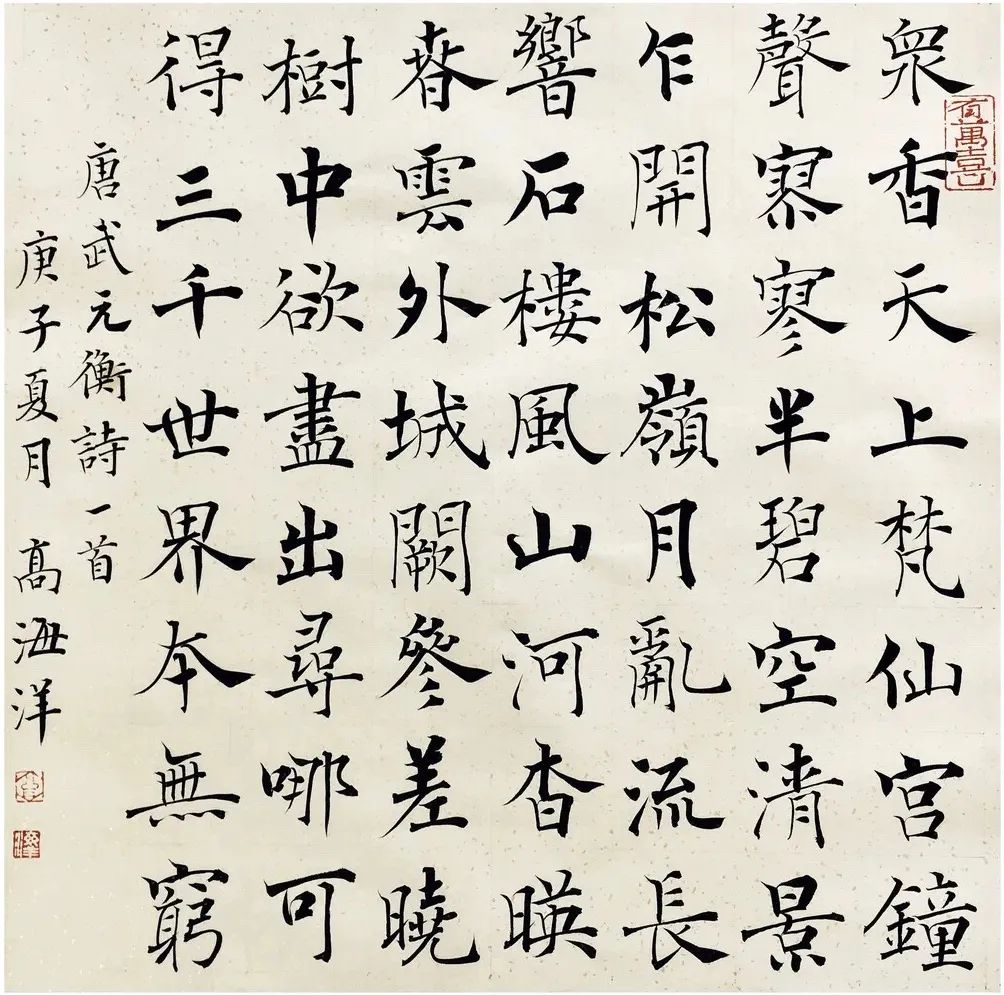 眾香天上梵仙宮鐘
聲寂寥半碧空清景
乍開松嶺月亂流長
響石樓風山河杳暎
春雲外城闕參差曉
樹中欲盡出尋哪可
得三千世界本無窮
唐武元衡詩一首
庚子夏月 高海洋
有萬喜